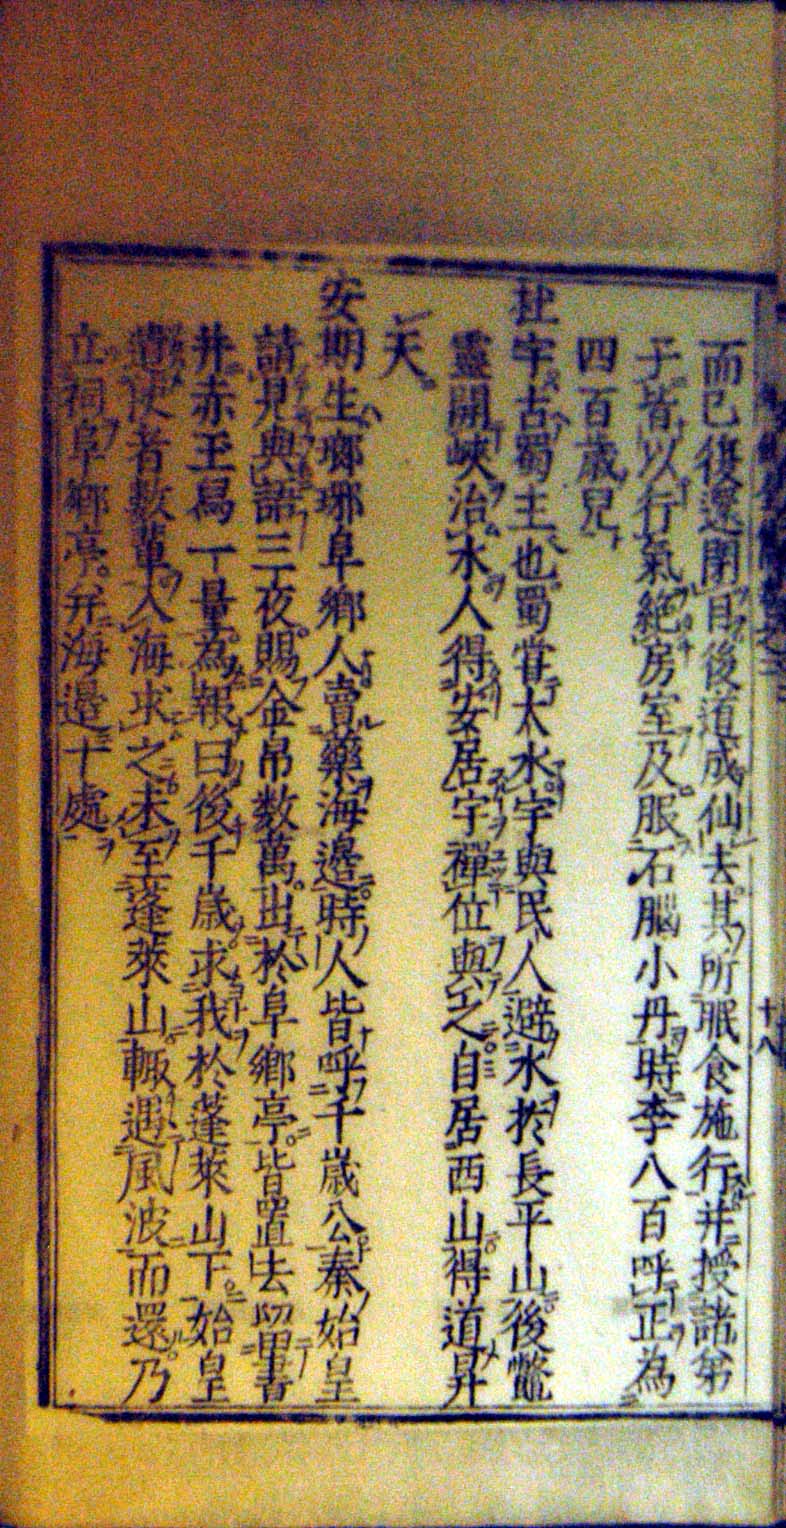 而已復還閉目後道成仙去其所眠食施行并授諸弟
子皆以行氣絶房室及服石腦小丹時李八百呼正為
四百歲兒
杜宇古蜀主也蜀嘗大水宇與民人避水於長平山後鱉
靈開峽治水人得安居宇禪位與之自居西山得道昇
天
安期生瑯琊阜鄉人賣藥海邊時人皆呼千歲公秦始皇
請見與語三夜賜金帛数萬出於阜鄉亭皆置去留書
并赤玉舄一量為報曰後千歲求我於蓬萊山下始皇
遣使者数輩入海求之未至蓬萊山輙遇風波而還乃
立祠阜鄉亭并海邊十處
十八